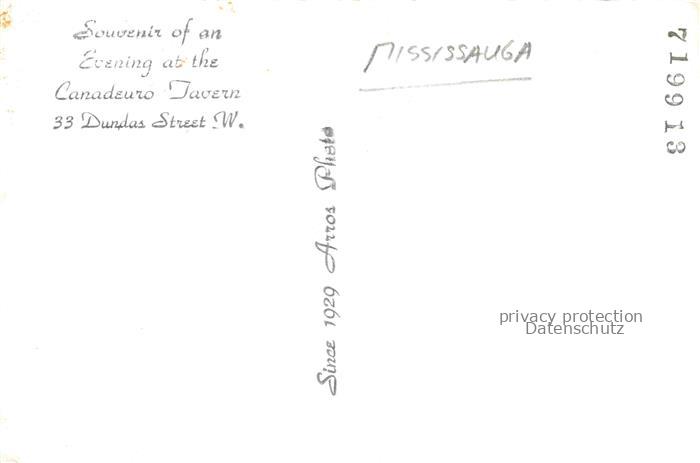 Souvenir of an
Evening at the
Canadeuro Tavern
33 Dundas Street W.
MISSISSAUGA
Since 1929 Arros Photo
719913
privacy protection
Datenschutz